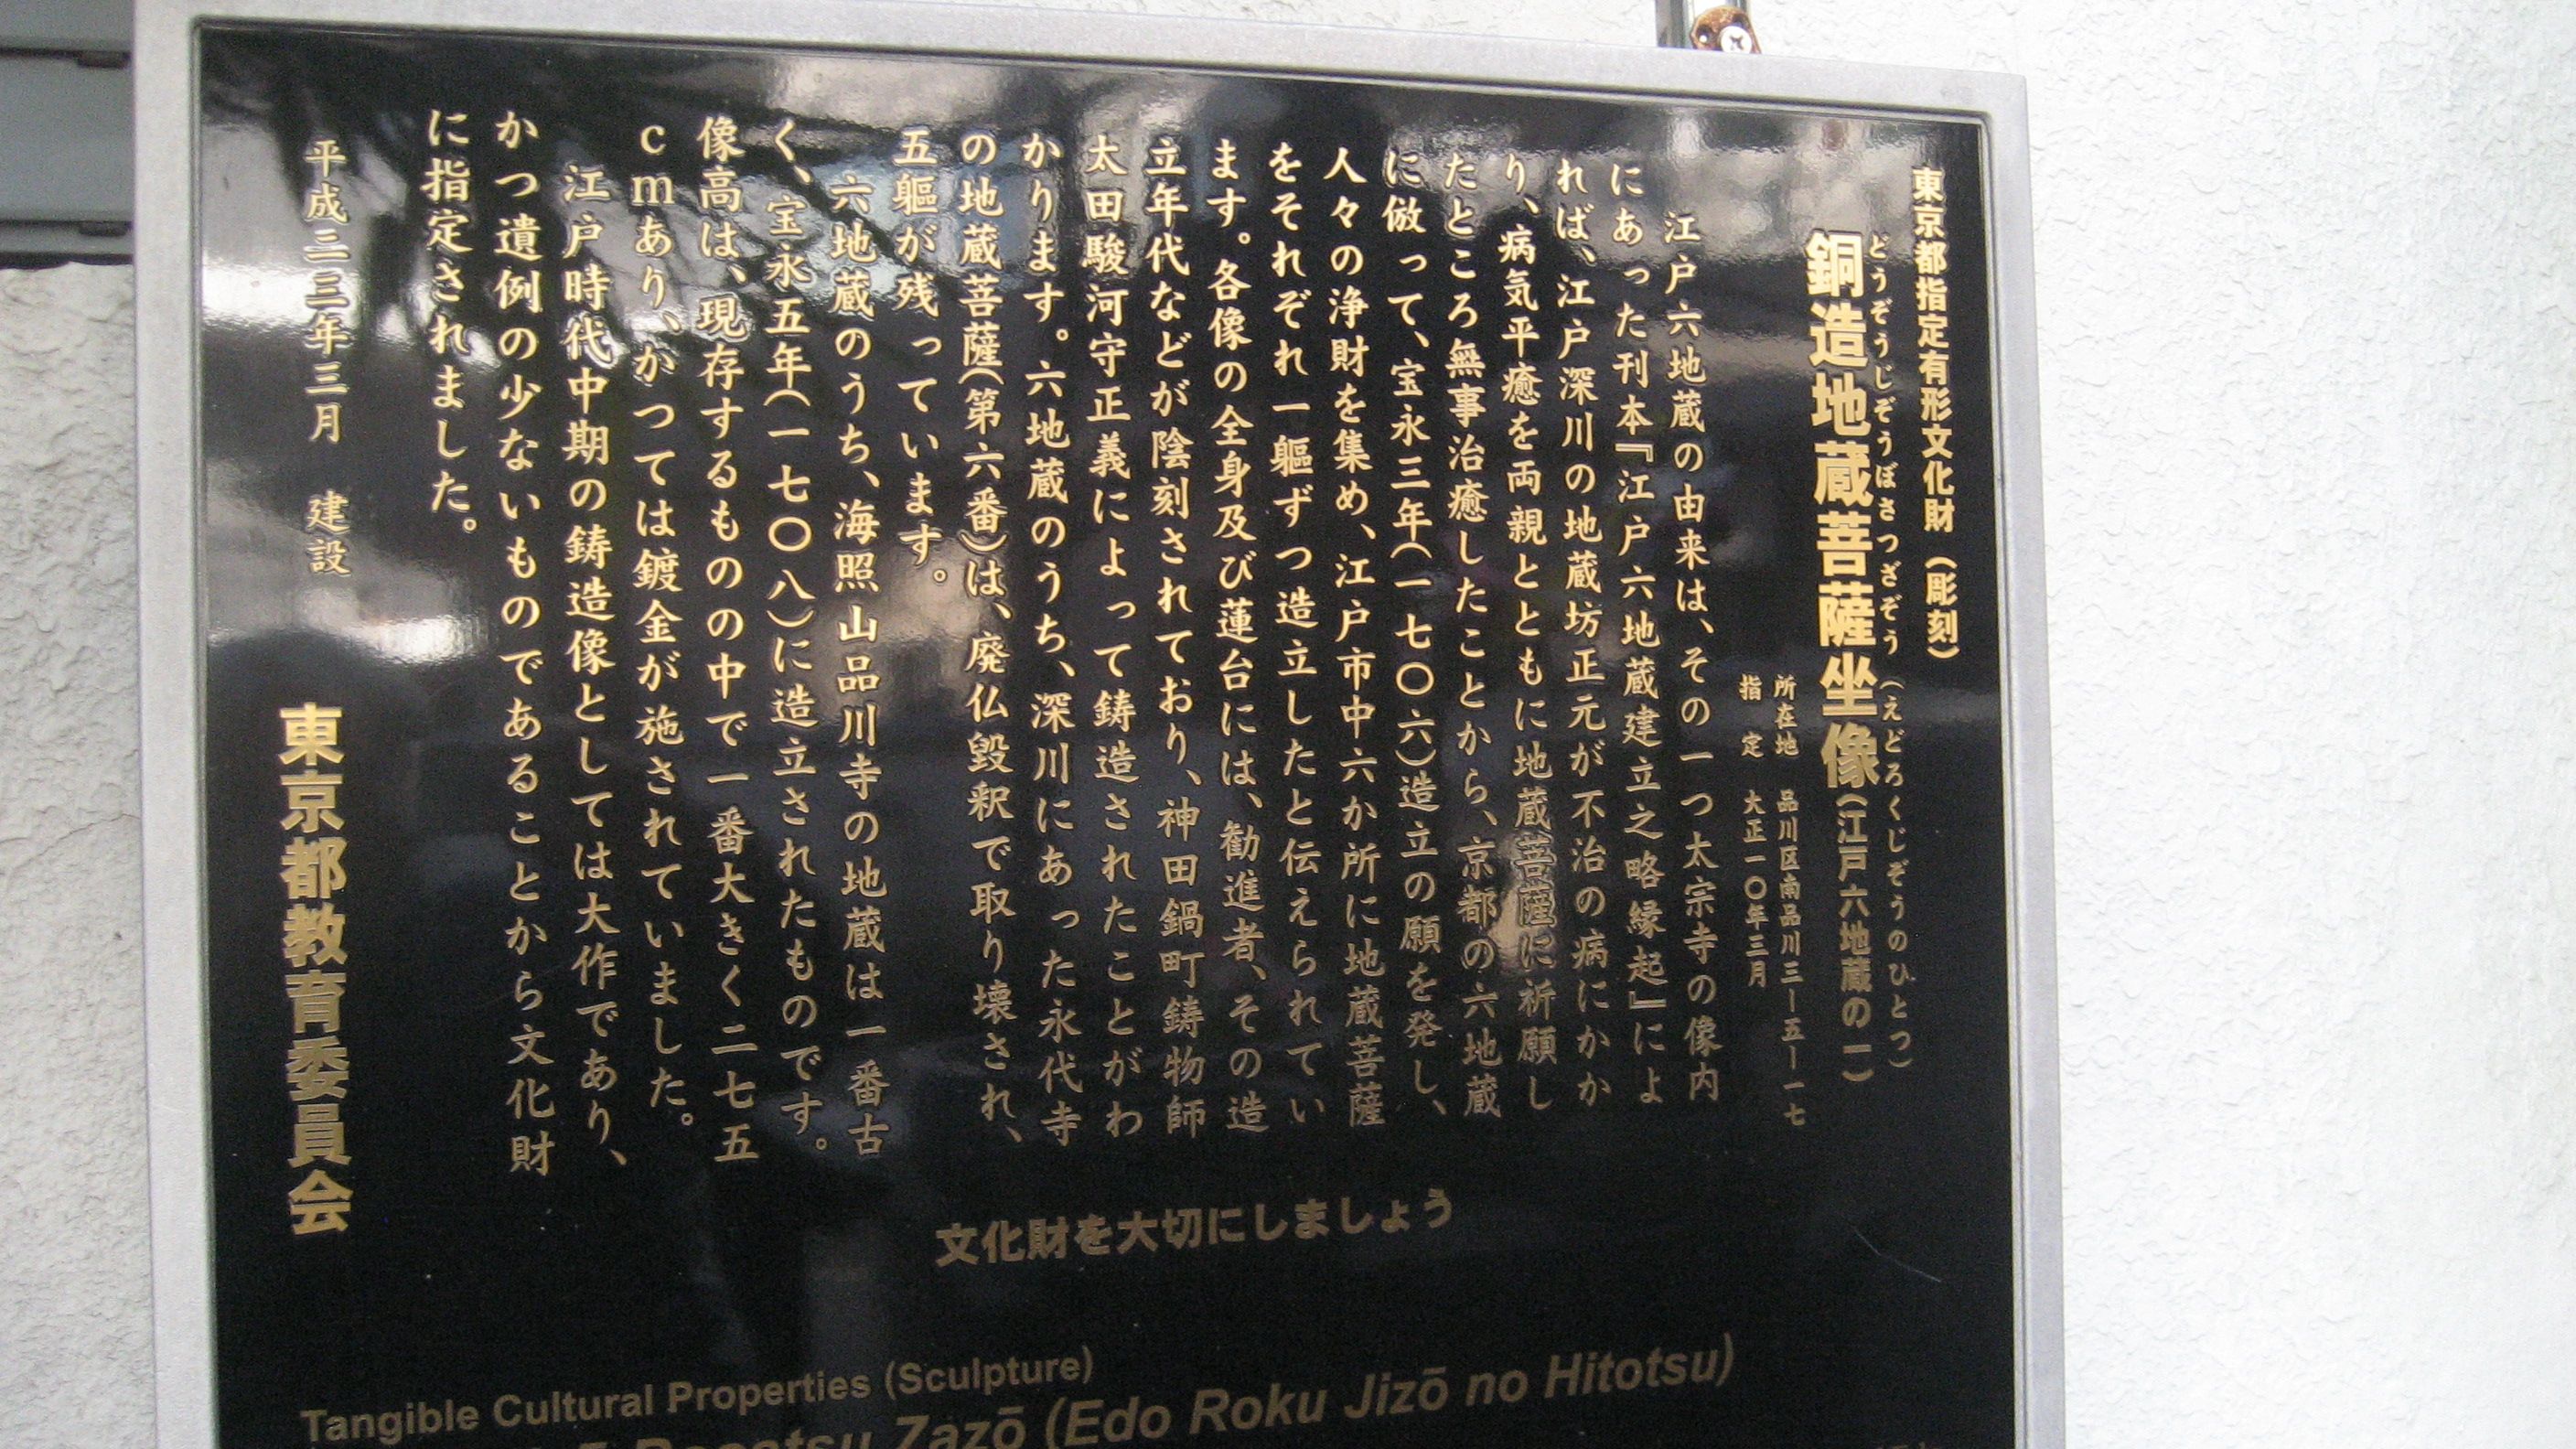 東京都指定有形文化財（彫刻）
どうぞうじぞうぼさつざぞう（えどろくじぞうのひとつ）
銅造地蔵菩薩坐像（江戸六地蔵の一）
所在地　品川区南品川三ー五ー一七
指　定　大正一〇年三月
江戸六地蔵の由来は、その一つ太宗寺の像内
にあった刊本『江戸六地蔵建立之略縁起』によ
れば、江戸深川の地蔵坊正元が不治の病にかか
り、病気平癒を両親とともに地蔵菩薩に祈願し
たところ無事治癒したことから、京都の六地蔵
に倣って、宝永三年（一七〇六）造立の願を発し、
人々の浄財を集め、江戸市中六か所に地蔵菩薩
をそれぞれ一軀ずつ造立したと伝えられてい
ます。各像の全身及び蓮台には、勧進者、その造
立年代などが陰刻されており、神田鍋町鋳物師
太田駿河守正義によって鋳造されたことがわ
かります。六地蔵のうち、深川にあった永代寺
の地蔵菩薩（第六番）は、廃仏毀釈で取り壊され、
五軀が残っています。
六地蔵のうち、海照山品川寺の地蔵は一番古
く、宝永五年（一七〇八）に造立されたものです。
像高は、現存するものの中で一番大きく二七五
ｃｍあり、かつては鍍金が施されていました。
江戸時代中期の鋳造像としては大作であり、
かつ遺例の少ないものであることから文化財
に指定されました。
平成二三年三月　建設
東京都教育委員会
文化財を大切にしましょう
Tangible Cultural Properties (Sculpture)
Zazō (Edo Roku Jizō no Hitotsu)